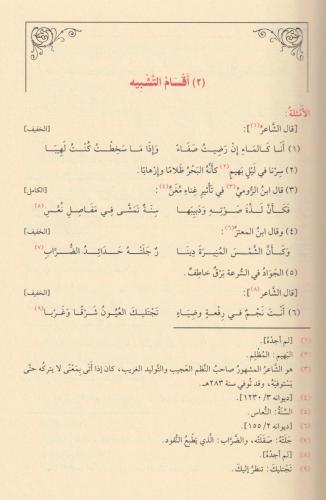 (٢) أَقْسَامُ التَّشْبِيهِ
الأَمْثِلَةُ:
[قال الشَّاعرُ(١)]: [الخفيف]
(١) أَنَا كَالمَاءِ إِنْ رَضِيتُ صَفَاءً وَإِذَا مَا سَخِطتُ كُنْتُ لَهِيبَا
(٢) سِرْنا في لَيْلٍ بَهِيم(٢) كأَنَّهُ البَحْرُ ظَلامًا وإِرْهابًا.
(٣) قال ابنُ الرُّوميِّ(٣) في تَأثيرِ غِناءِ مُغَنٍّ(٤): [الكامل]
فَكَأَنَّ لَذَّةَ صَوْتِهِ وَدَبِيبَهَا سِنَةٌ تَمَشَّى فِي مَفَاصِلِ نُعَّسِ(٥)
(٤) وقال ابنُ المعتزِّ(٦): [الخفيف]
وَكَأَنَّ الشَّمْسَ المُنِيرَةَ دِينَا رٌ جَلَتْهُ حَدَائِدُ الضَّرَّابِ(٧)
(٥) الجَوَادُ في السُّرعة بَرْقٌ خاطِفٌ.
[قال الشَّاعر(٨)]: [الخفيف]
(٦) أَنْتَ نَجْمٌ فِي رِفْعَةٍ وَضِيَاءٍ تَجْتَلِيكَ العُيُونُ شَرْقًا وَغَرْبَا(٩)
(١) [لم أجدْهُ].
(٢) البَهيم: المُظْلِم.
(٣) هو الشَّاعرُ المشهورُ صاحبُ النَّظم العجيب والتَّوليد الغريب، كان إذا أَتَى بِمَعْنًى لا يتركه حتَّى
يَستوفيَهُ، وقد تُوفِّي سنة ٢٨٣هـ.
(٤) [ديوانه ٣/ ١٢٣٠].
(٥) السِّنَةُ: النُّعاس.
(٦) [ديوانه ٢/ ١٥٥].
(٧) جَلَتْهُ: صَقَلَتْه، والضَّرَّاب: الَّذي يَطْبَعُ النُّقود.
(٨) [لم أجدْهُ].
(٩) تَجتليكَ: تنظرُ إليكَ.